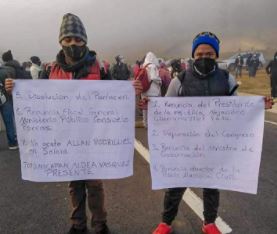 5. Disolución del Pactocorr.
6. Renuncia Fiscal General
Ministerio Público Consuelo
Porras.
7. No queremos ALLAN RODRIGUES
en Sololá
TOTONICAPAN ALDEA VASQUEZ
PRESENTE
1. Renuncia del Presidente de
la República Alejandro
Giammattei Falla.
2. Depuración del Congreso
3. Renuncia del Ministro de
Gobernación.
4. Renuncia director de la
Policía Nacional Civil.